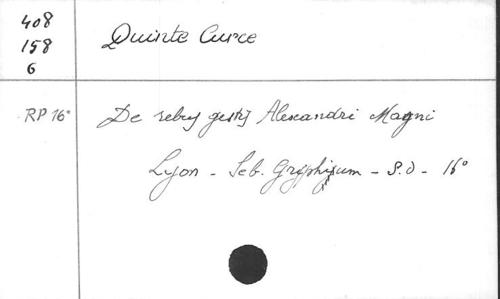 408
158
6
Quinte Curce
RP 16°
De rebus gestis Alexandri Magni
Lyon - Seb. Gryphium - S.d - 16°